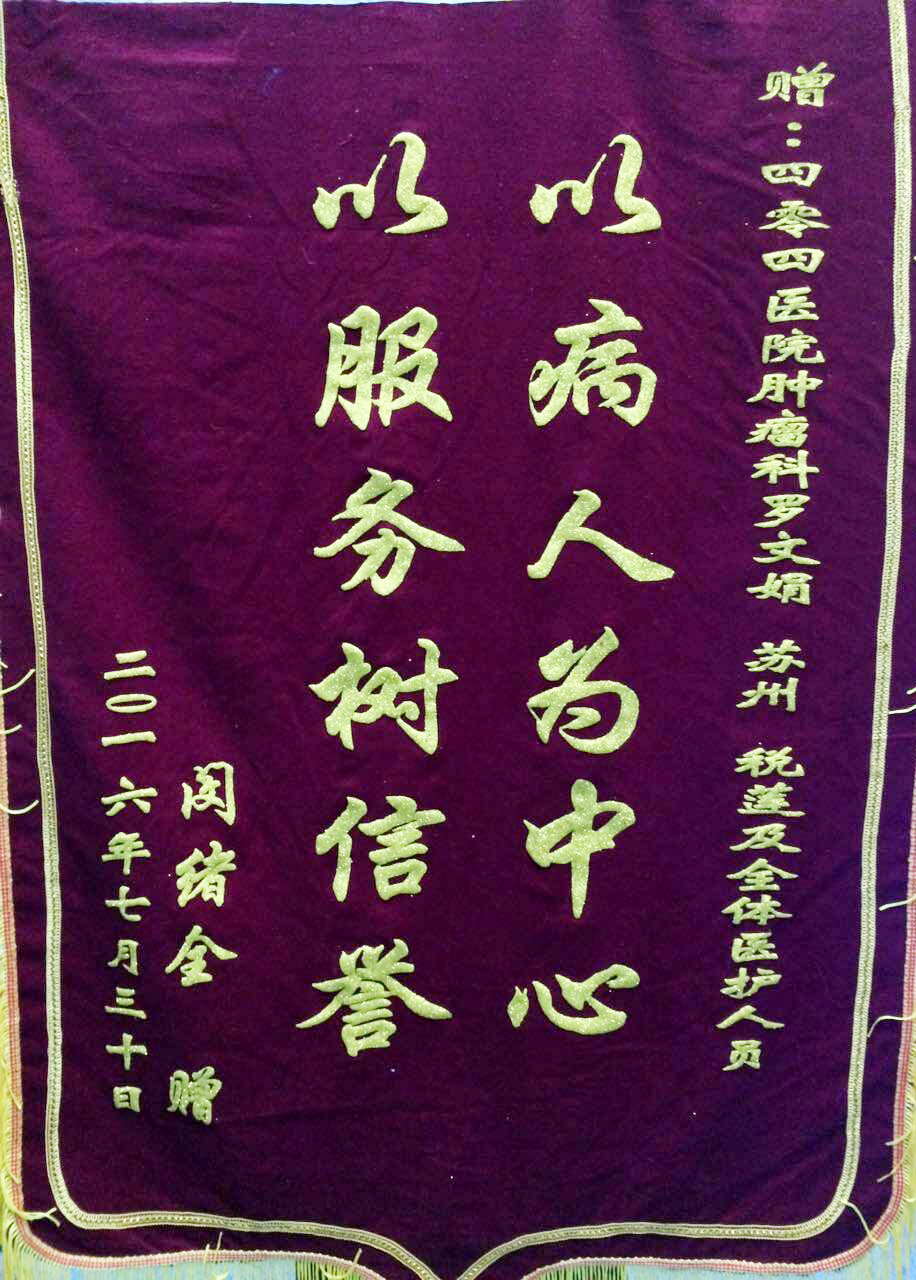 赠：四零四医院肿瘤科罗文娟 苏州 税莲及全体医护人员
以病人为中心
以服务树信誉
闵绪全 赠
二〇一六年七月三十日